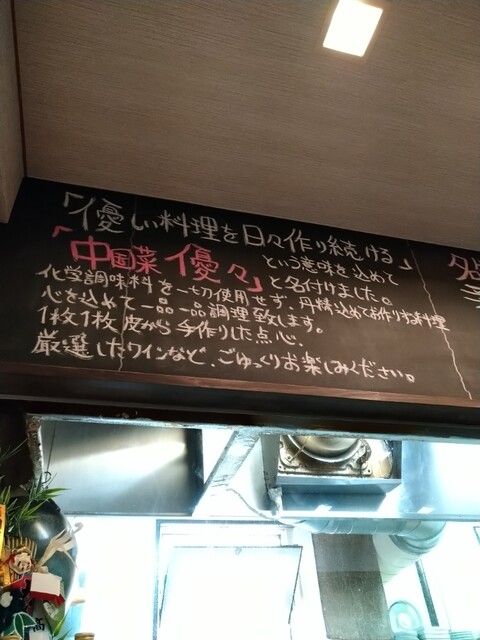 「優しい料理を日々作り続ける」
という意味を込めて
「中国菜 優々」と名付けました。
化学調味料を一切使用せず、丹精込めてお作りするお料理
心を込めて一品一品調理致します。
1枚1枚皮から手作りした点心、
厳選したワインなど、ごゆっくりお楽しみください。